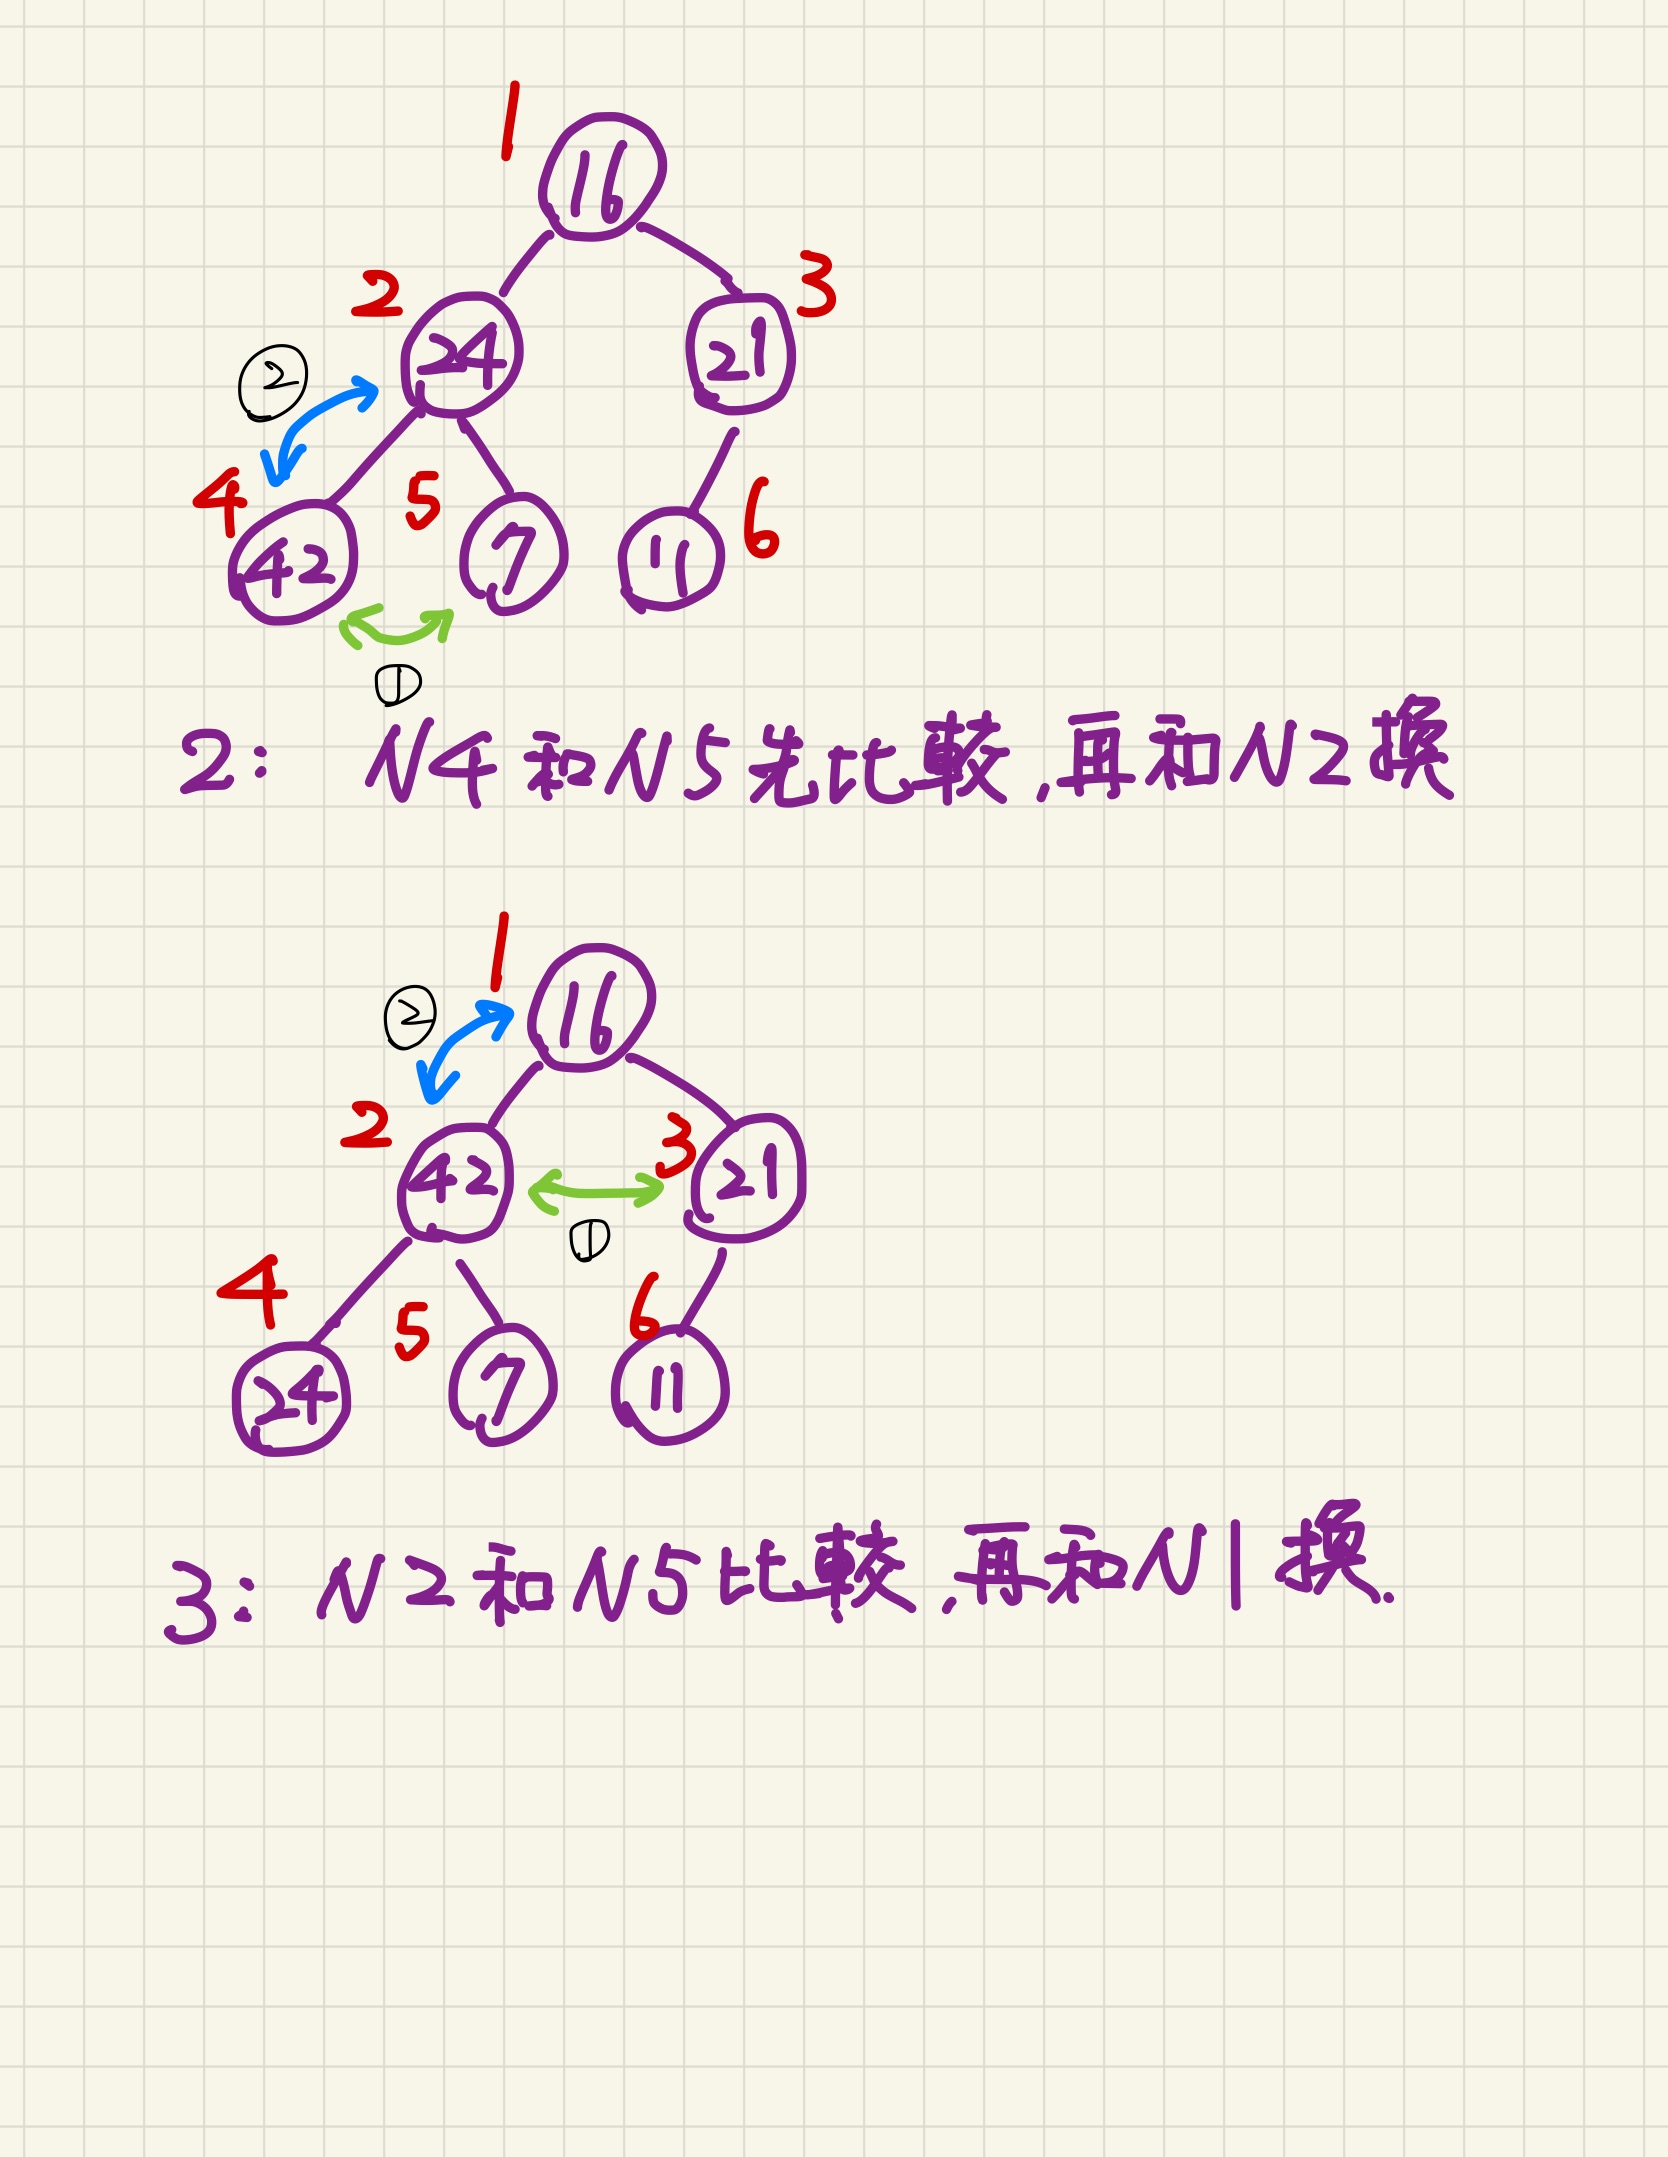 1
16
2
3
24
21
②
4
5
6
42
7
11
①
2: N4和N5先比較,再和N2換
1
16
②
2
3
42
21
①
4
5
6
24
7
11
3: N2和N5比較,再和N1換.